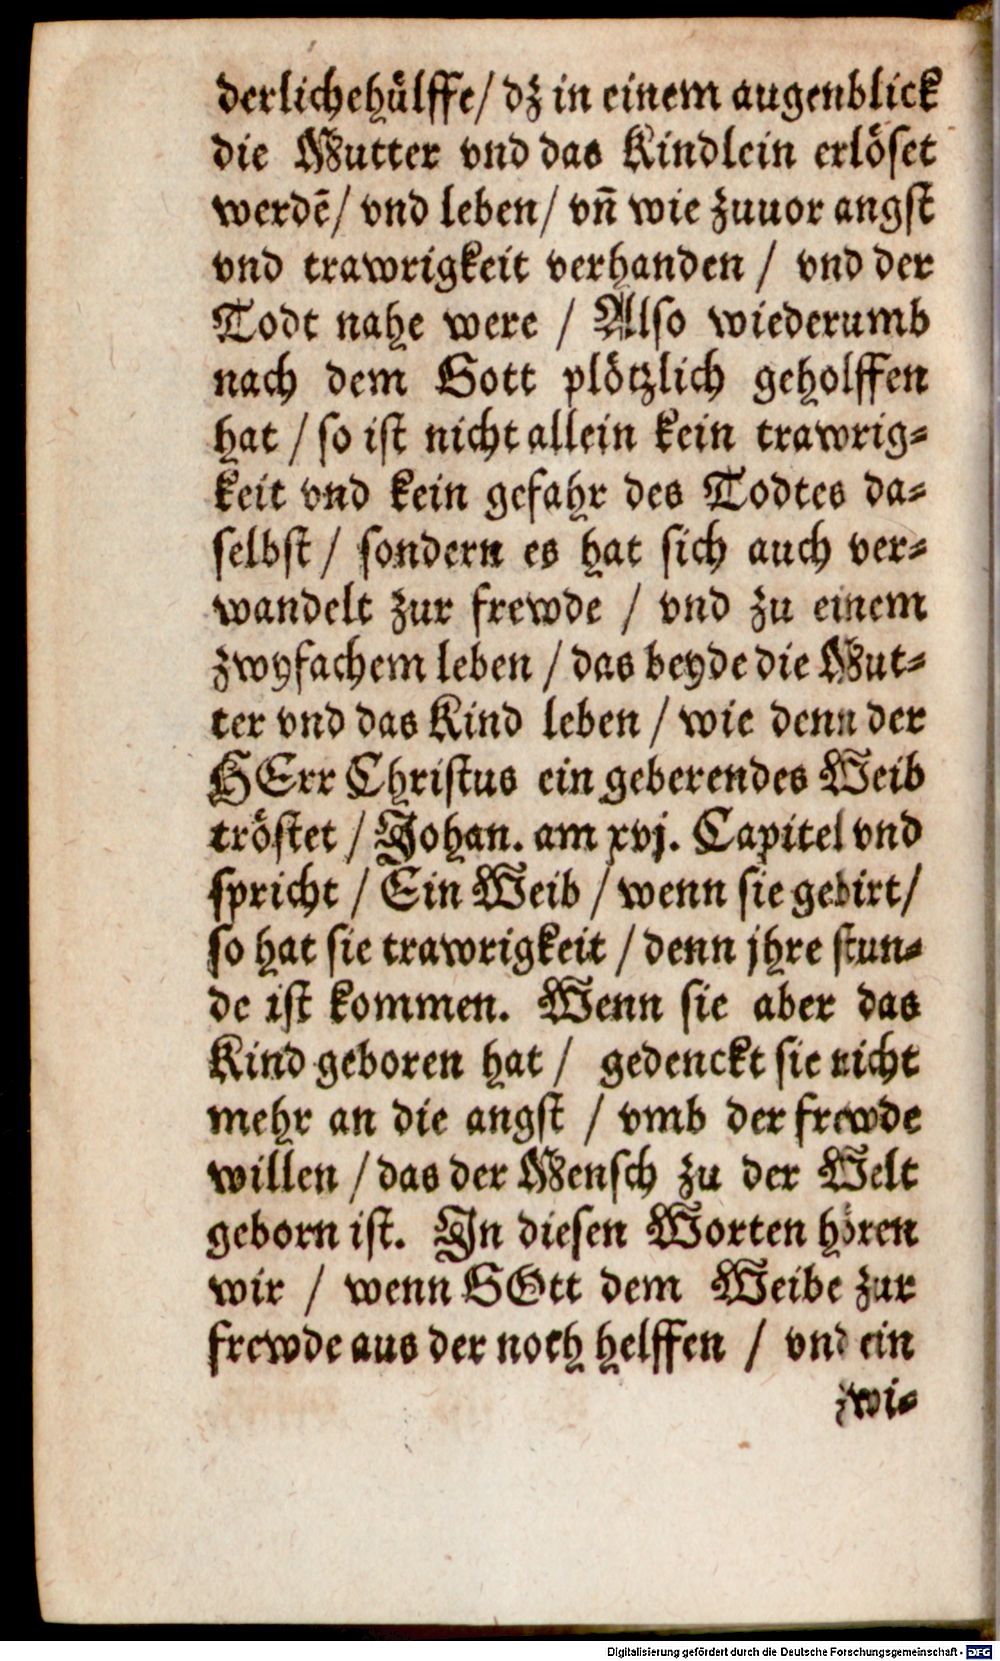 derlichehuͤlffe/ dz in einem augenblick
die Mutter vnd das Kindlein erloͤset
werdẽ/ vnd leben/ vñ wie zuuor angst
vnd trawrigkeit verhanden / vnd der
Todt nahe were / Also wiederumb
nach dem Gott ploͤtzlich geholffen
hat / so ist nicht allein kein trawrig⸗
keit vnd kein gefahr des Todtes da⸗
selbst / sondern es hat sich auch ver⸗
wandelt zur frewde / vnd zu einem
zwyfachem leben / das beyde die Mut⸗
ter vnd das Kind leben / wie denn der
HErr Christus ein geberendes Weib
troͤstet / Johan. am xvj. Capitel vnd
spricht / Ein Weib / wenn sie gebirt/
so hat sie trawrigkeit / denn jhre stun⸗
de ist kommen. Wenn sie aber das
Kind geboren hat / gedenckt sie nicht
mehr an die angst / vmb der frewde
willen / das der Mensch zu der Welt
geborn ist. In diesen Worten hoͤren
wir / wenn GOtt dem Weibe zur
frewde aus der noth helffen / vnd ein
zwi⸗
Digitalisierung gefördert durch die Deutsche Forschungsgemeinschaft - DFG